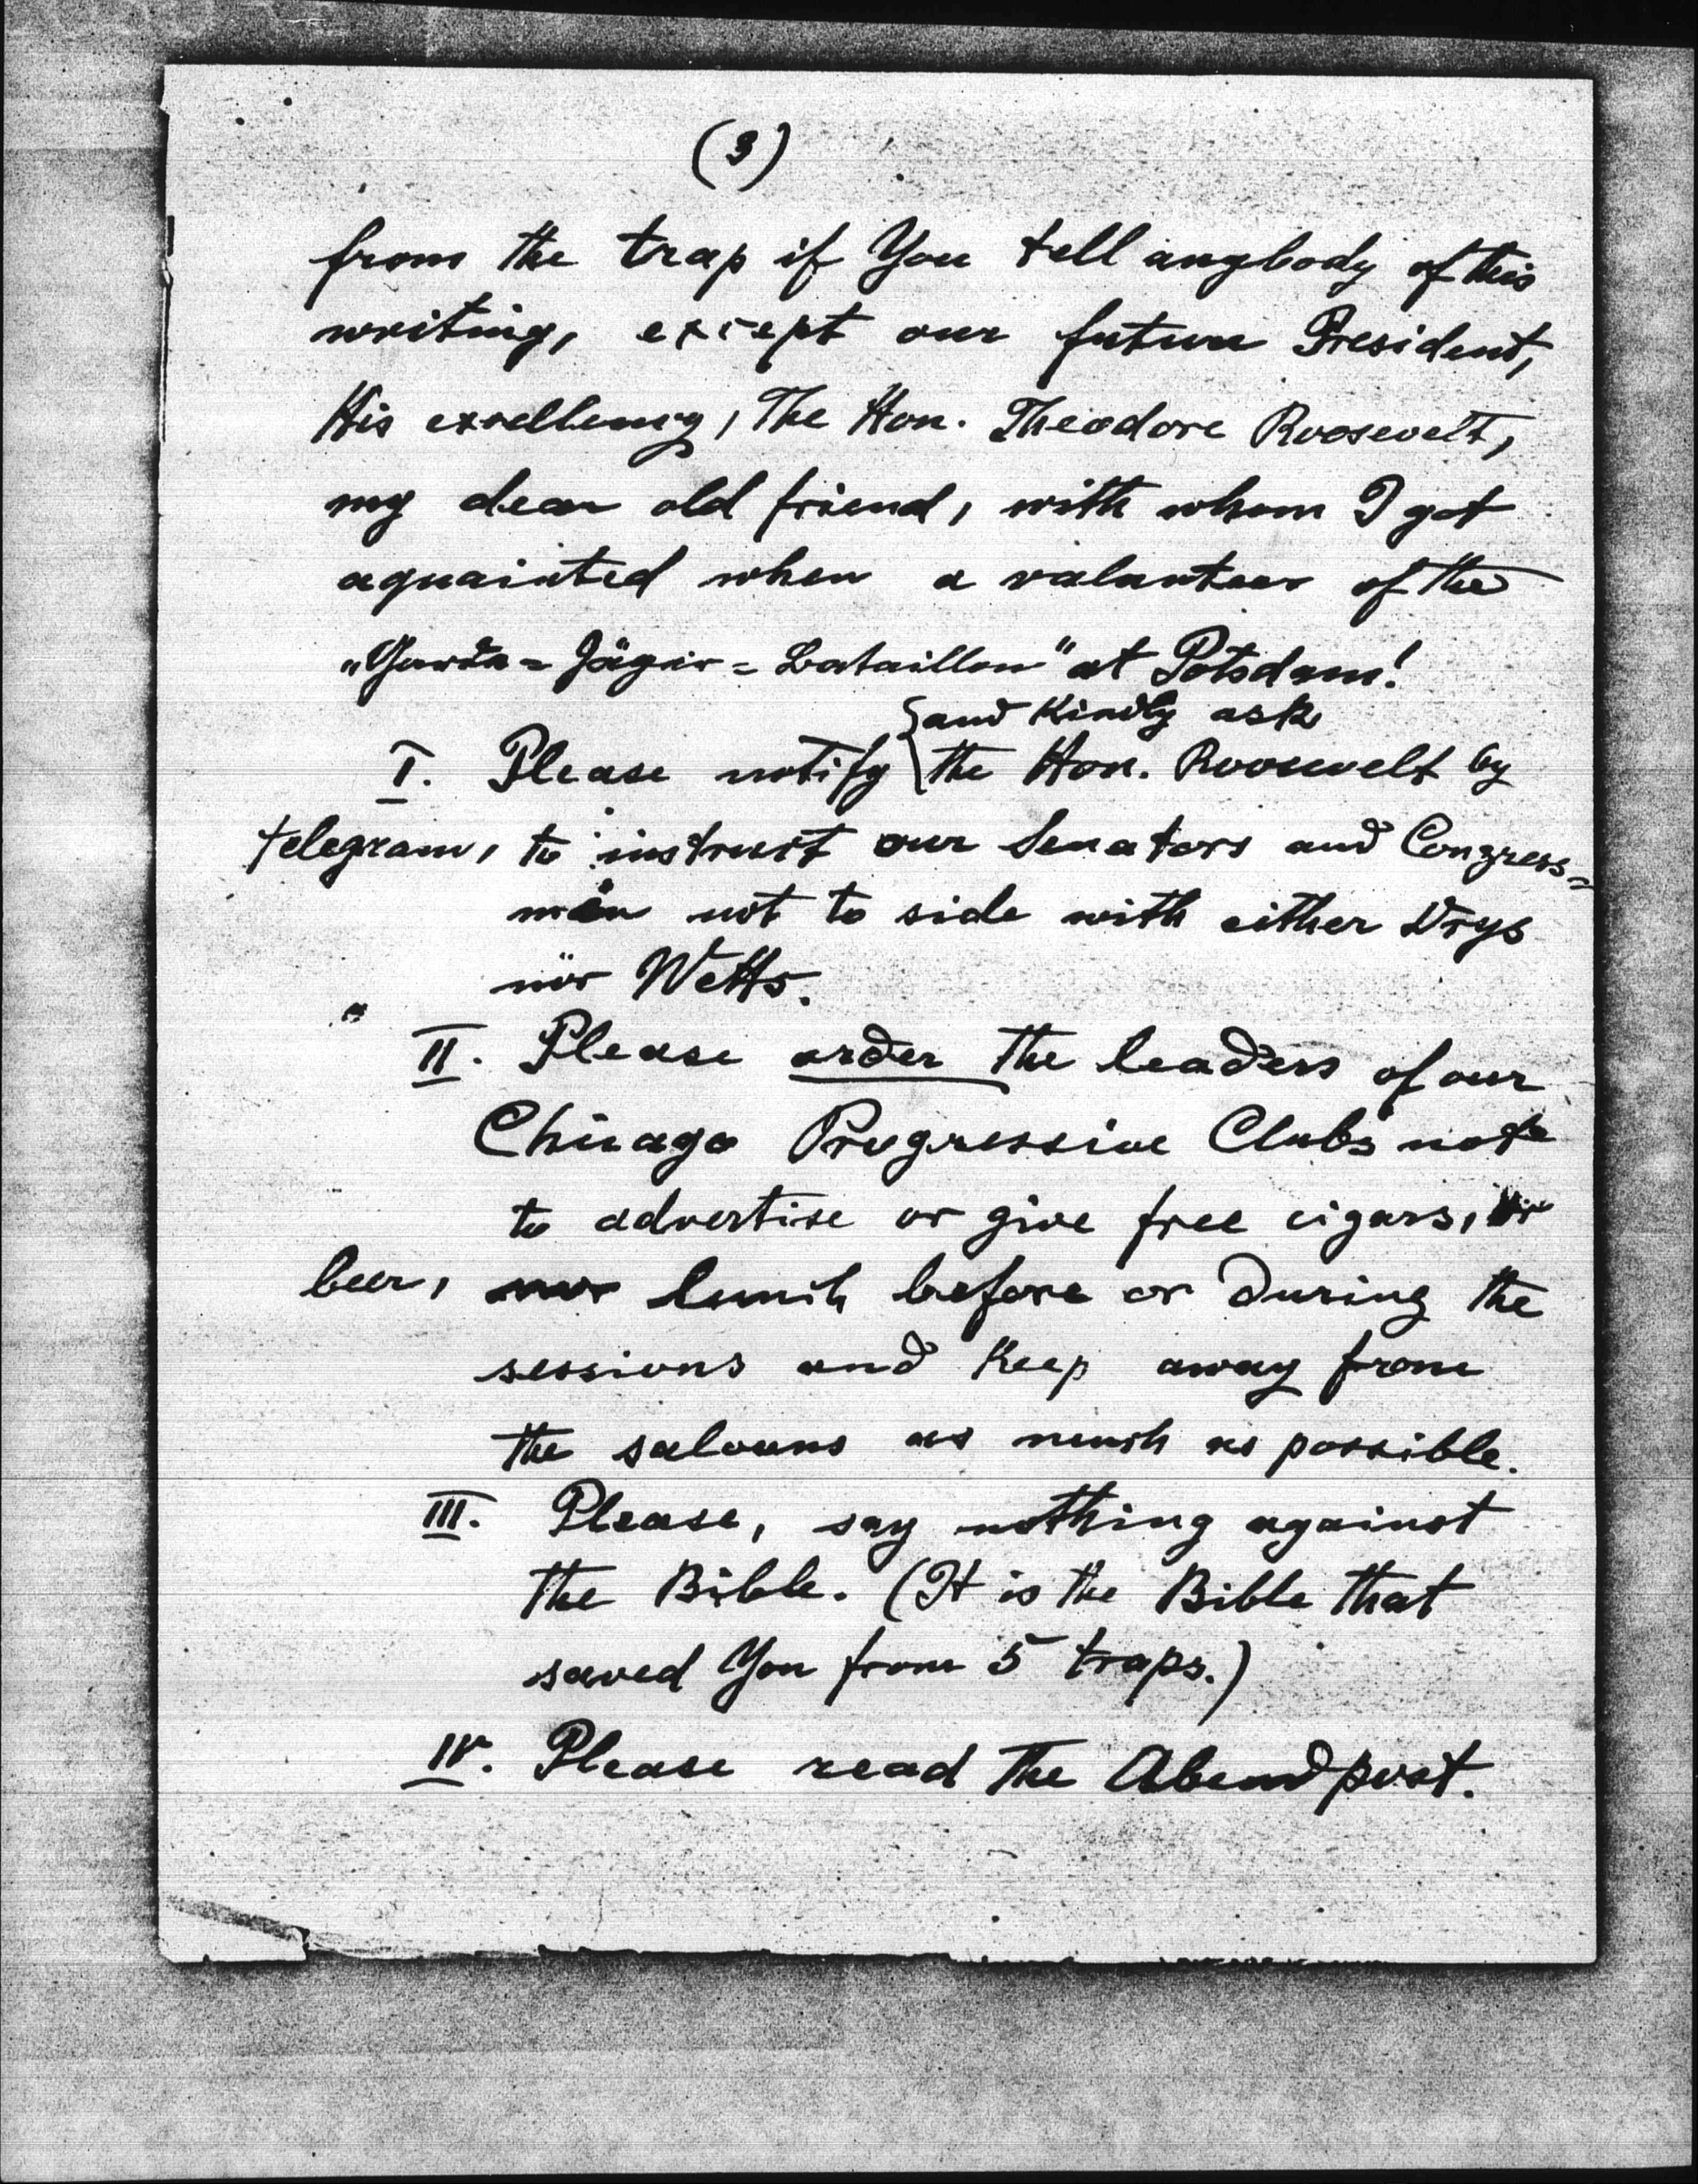 (3)
from the trap if You tell anybody of this
writing, except our future President,
His excellency, The Hon. Theodore Roosevelt,
my dear old friend, with whom I got
aquainted when a valunteer of the
„Garde = Jäger = Bataillon" at Potsdam!
{and Kindly ask
I. Please notify the Hon. Roosevelt by
telegram, to instruct our Senators and Congress=
men not to side with either Drys
nor Wetts.
II. Please order the leaders of our
Chicago Progressive Clubs not
to advertise or give free cigars,
beer, lunch before or during the
sessions and Keep away from
the saloons as much as possible.
III. Please, say nothing against
the Bible. (It is the Bible that
saved You from 5 traps.)
IV. Please read the Abendpost.